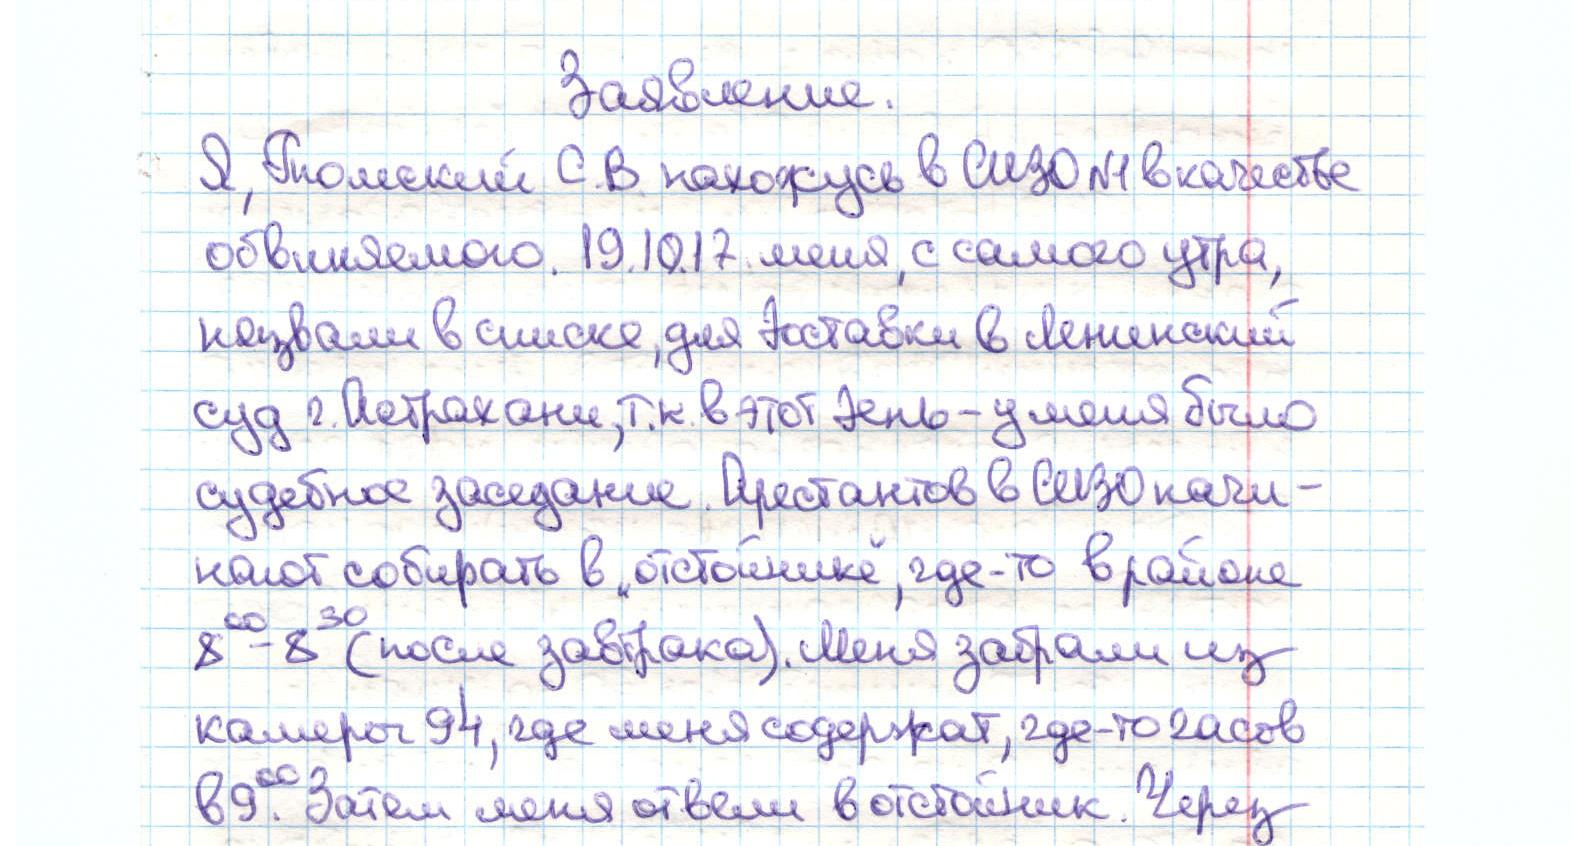 Заявление.
Я, Гномский С.В. нахожусь в СИЗО №1 в качестве
обвиняемого. 19.10.17. меня, с самого утра,
назвали в списке, для доставки в Ленинский
суд г. Астрахани, т.к. в этот день – у меня было
судебное заседание. Арестантов в СИЗО начи-
нают собирать в „отстойнике", где-то в районе
8⁰⁰ – 8³⁰ (после завтрака). Меня забрали из
камеры 94, где меня содержат, где-то часов
в 9⁰⁰. Затем меня отвели в отстойник. Через